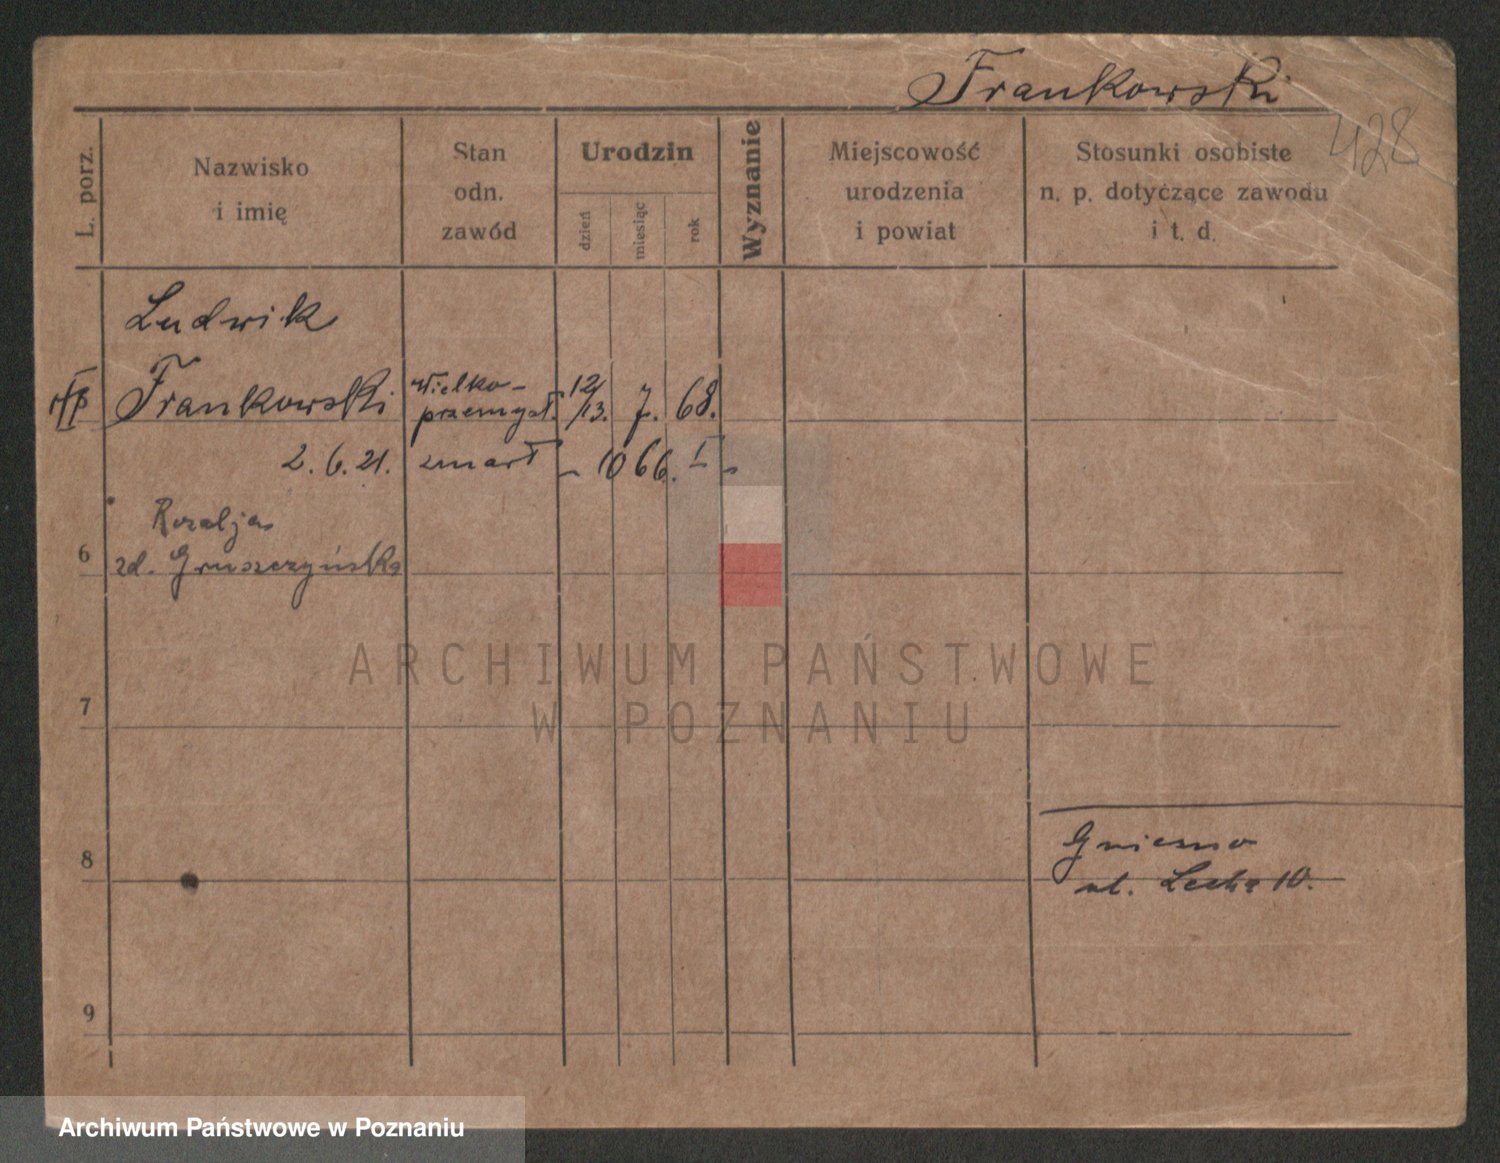 Frankowski
428
L. porz.
Nazwisko
i imię
Stan
odn.
zawód
Urodzin
dzień
miesiąc
rok
Wyznanie
Miejscowość
urodzenia
i powiat
Stosunki osobiste
n. p. dotyczące zawodu
i t. d.
Ludwik
Frankowski wielko- 12/13. 7. 68.
przemysł.
2. 6. 21. zmarł - 1066. I -
Rozalja
6 zd. Gruszczyńska
ARCHIWUM PAŃSTWOWE
W POZNANIU
7
Gniezno
8 ul. Lecha 10.
9
Archiwum Państwowe w Poznaniu